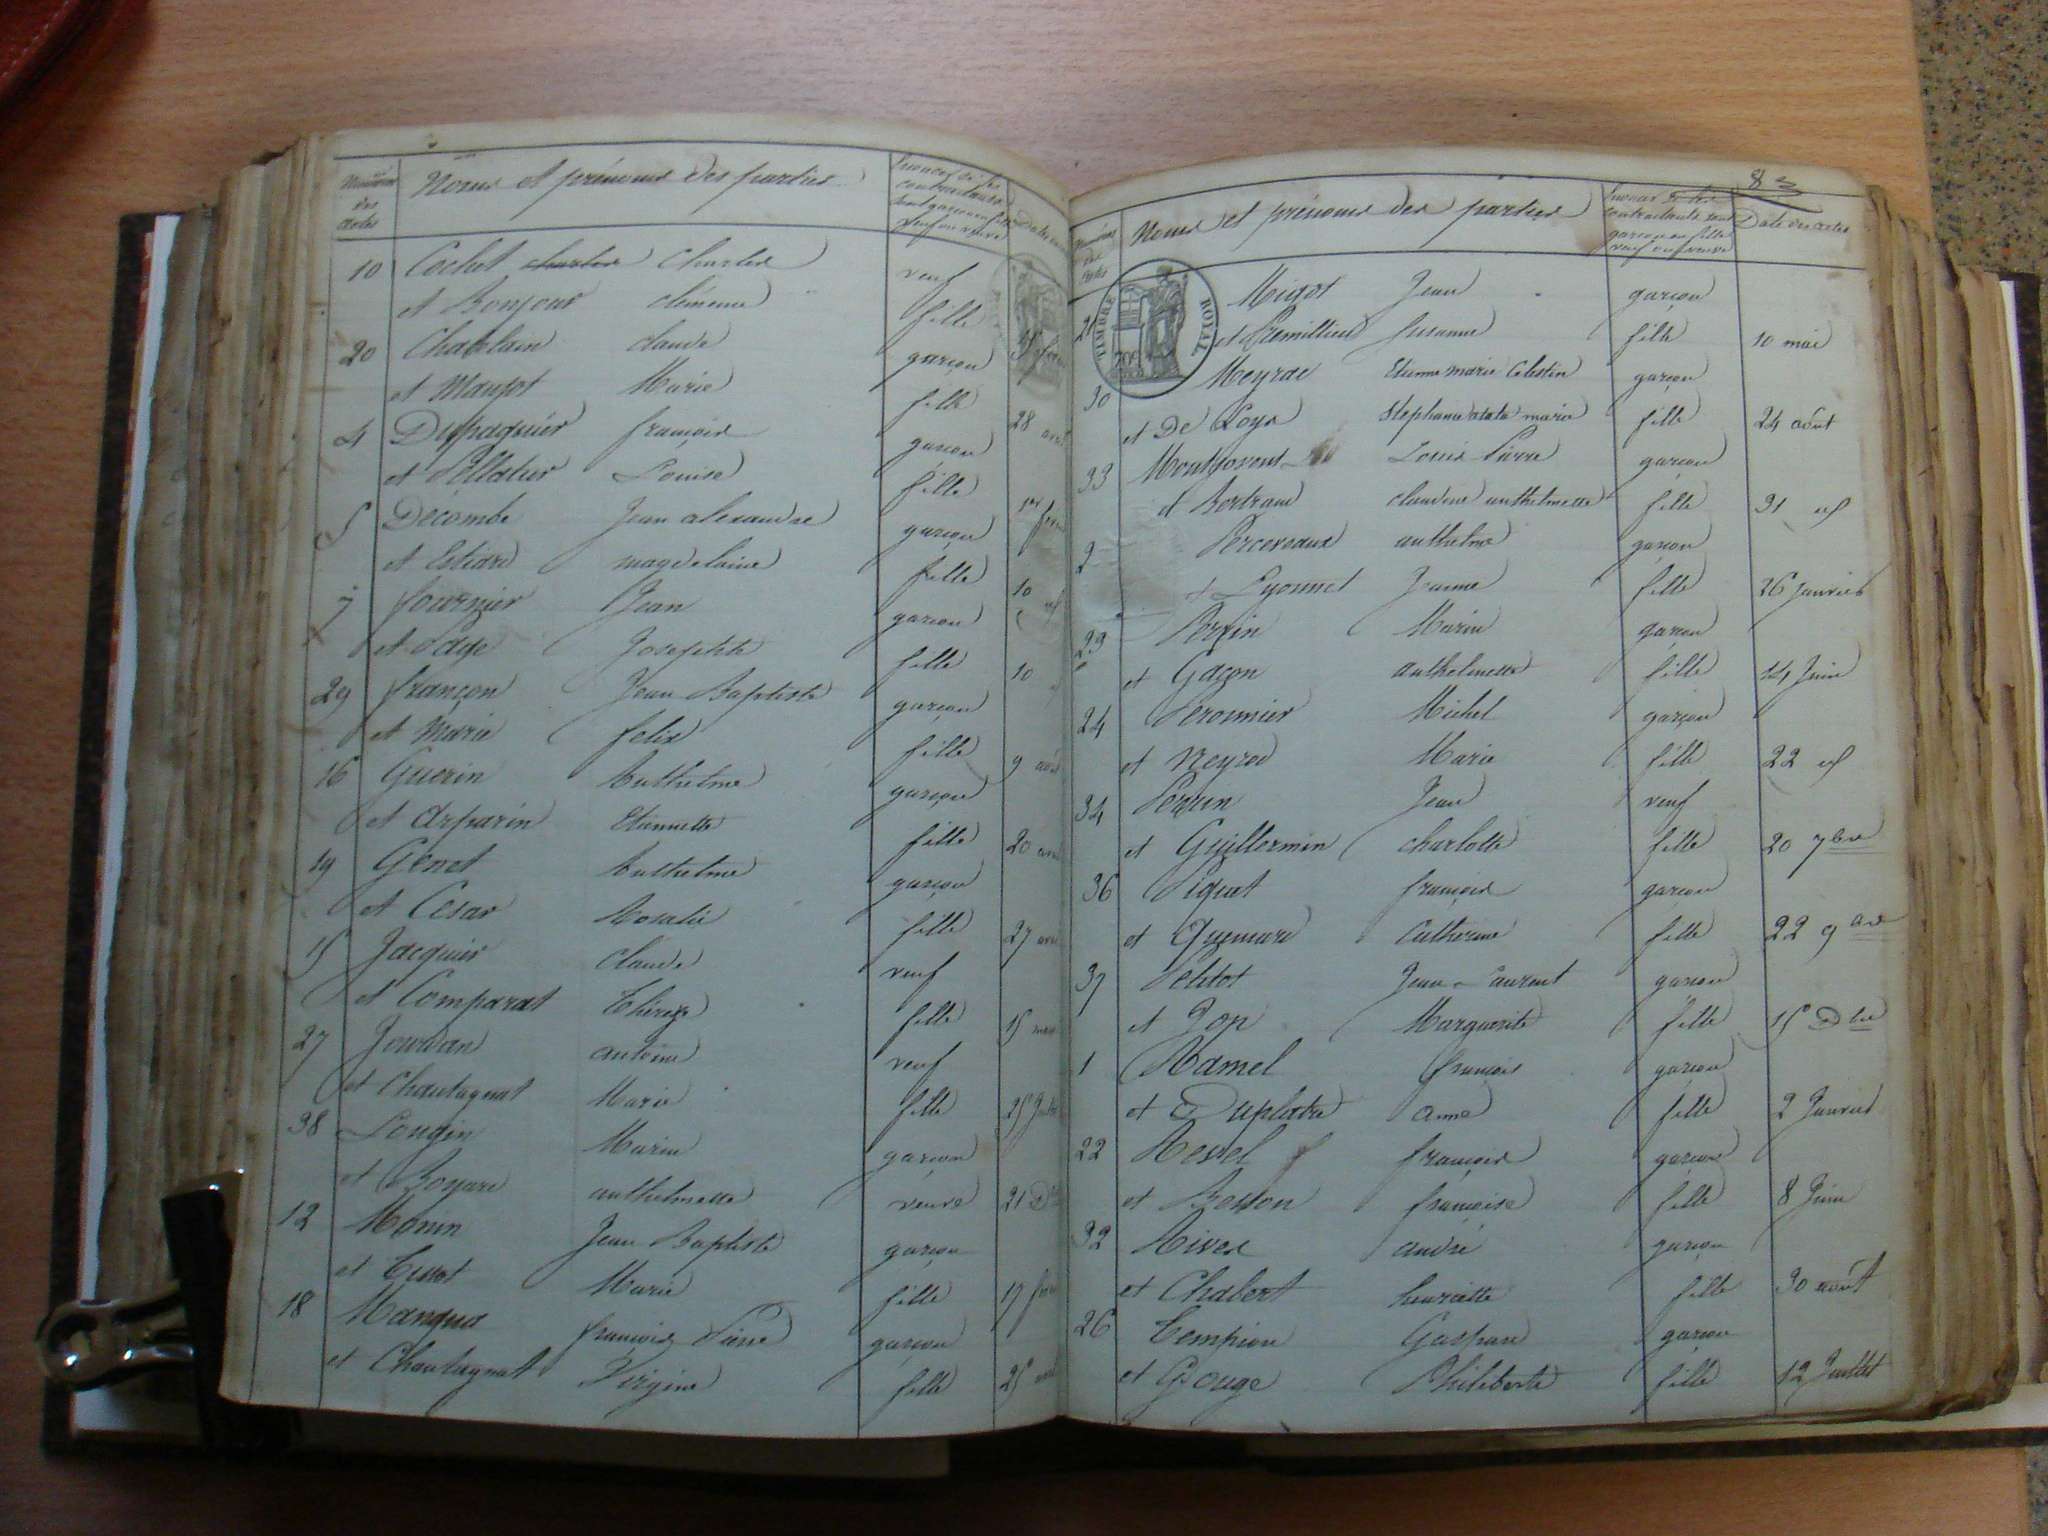 Numéros des actes
Noms et prénoms des parties
10 Cochet charles Charles veuf
et Bonjour clémence fille
20 Chatelain claude garçon
et Maujot Marie fille 28
4 Dupasquier françois garçon
et Pelletier Louise fille
5 Decombe Jean alexandre garçon
et magdelaine fille 10
7 fournier Jean garçon
et Josephte fille 10
29 françon Jean Baptiste garçon
et Marie felix fille 9 août
16 Guerin Anthelme garçon
et Arparin Etiennette fille 20
19 Genet Anthelme garçon
et César Rosalie fille 27
15 Jacquier claude veuf
et Comparat Thérèze fille 15
27 Jourdan antoine veuf
et Chautagnat Marie fille 25
38 Lougin Marin garçon
et anthelmette veuve 21
12 Monin Jean Baptiste garçon
et Tissot Marie fille 17
18 françois Pierre garçon
et Chautagnat Virginie fille 25
83
Numéros des actes
Noms et prénoms des parties
Date des actes
TIMBRE ROYAL
Migot Jean garçon
21 et Premillieu Susanne fille 10 mai
Meyrac Etienne marie Celestin garçon
30 et De Loys Stephanie marie fille 24 août
33 Louis Pierre garçon
et Bertrand anthelmette fille 31 id
2 Perceveaux anthelme garçon
et Lyonnet Jeanne fille 26 Janvier
23 Perrin Marin garçon
et Gaçon anthelmette fille 14 Juin
24 Peronnier Michel garçon
et Neyrod Marie fille 22 id
34 Perrin Jean veuf
et Guillermin charlotte fille 20 7bre
36 Piquet françois garçon
et Catherine fille 22 9bre
37 Petitot Jean-Laurent garçon
et Jop Marguerite fille 15 Dbre
1 Ramel françois garçon
et Duplatre anne fille 2 Janvier
22 Revel françois garçon
et Besson françoise fille 8 Juin
32 Rives andré garçon
et Chabert henriette fille 30 août
26 Tempion Gaspard garçon
et Gouge Philiberte fille 12 Juillet